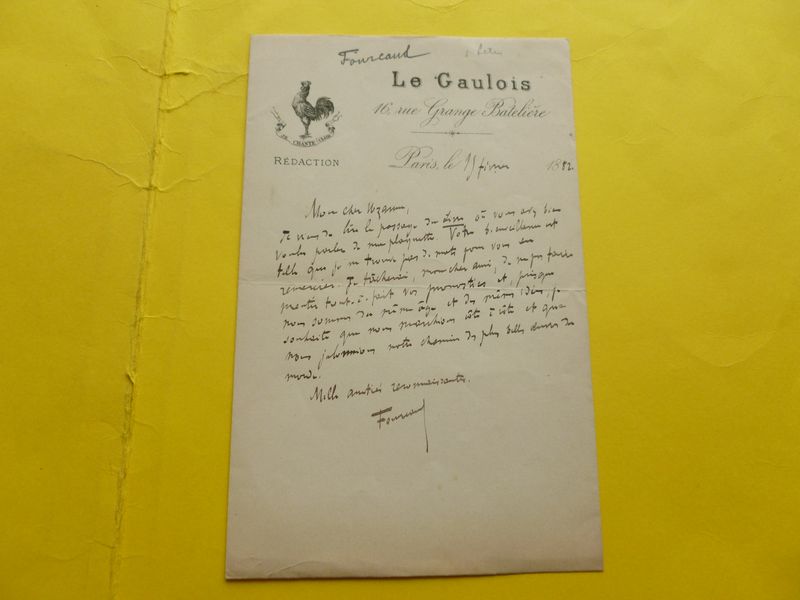 Fourcaud
Le Gaulois
16, rue Grange Batelière
CHANTE CLAIR
RÉDACTION
Paris, le 15 février 1882.
Mon cher Uzanne,
Je viens de lire le passage du Livre où vous avez bien
voulu parler de ma plaquette. Votre bienveillance est
telle que je ne trouve pas de mots pour vous en
remercier. Je tâcherai, mon cher ami, de ne pas faire
mentir tout-à-fait vos pronostics et, puisque
nous sommes du même âge et des mêmes idées, je
souhaite que nous marchions côte à côte et que
nous jalonnions notre chemin des plus belles du
monde.
Mille amitiés reconnaissantes.
Fourcaud